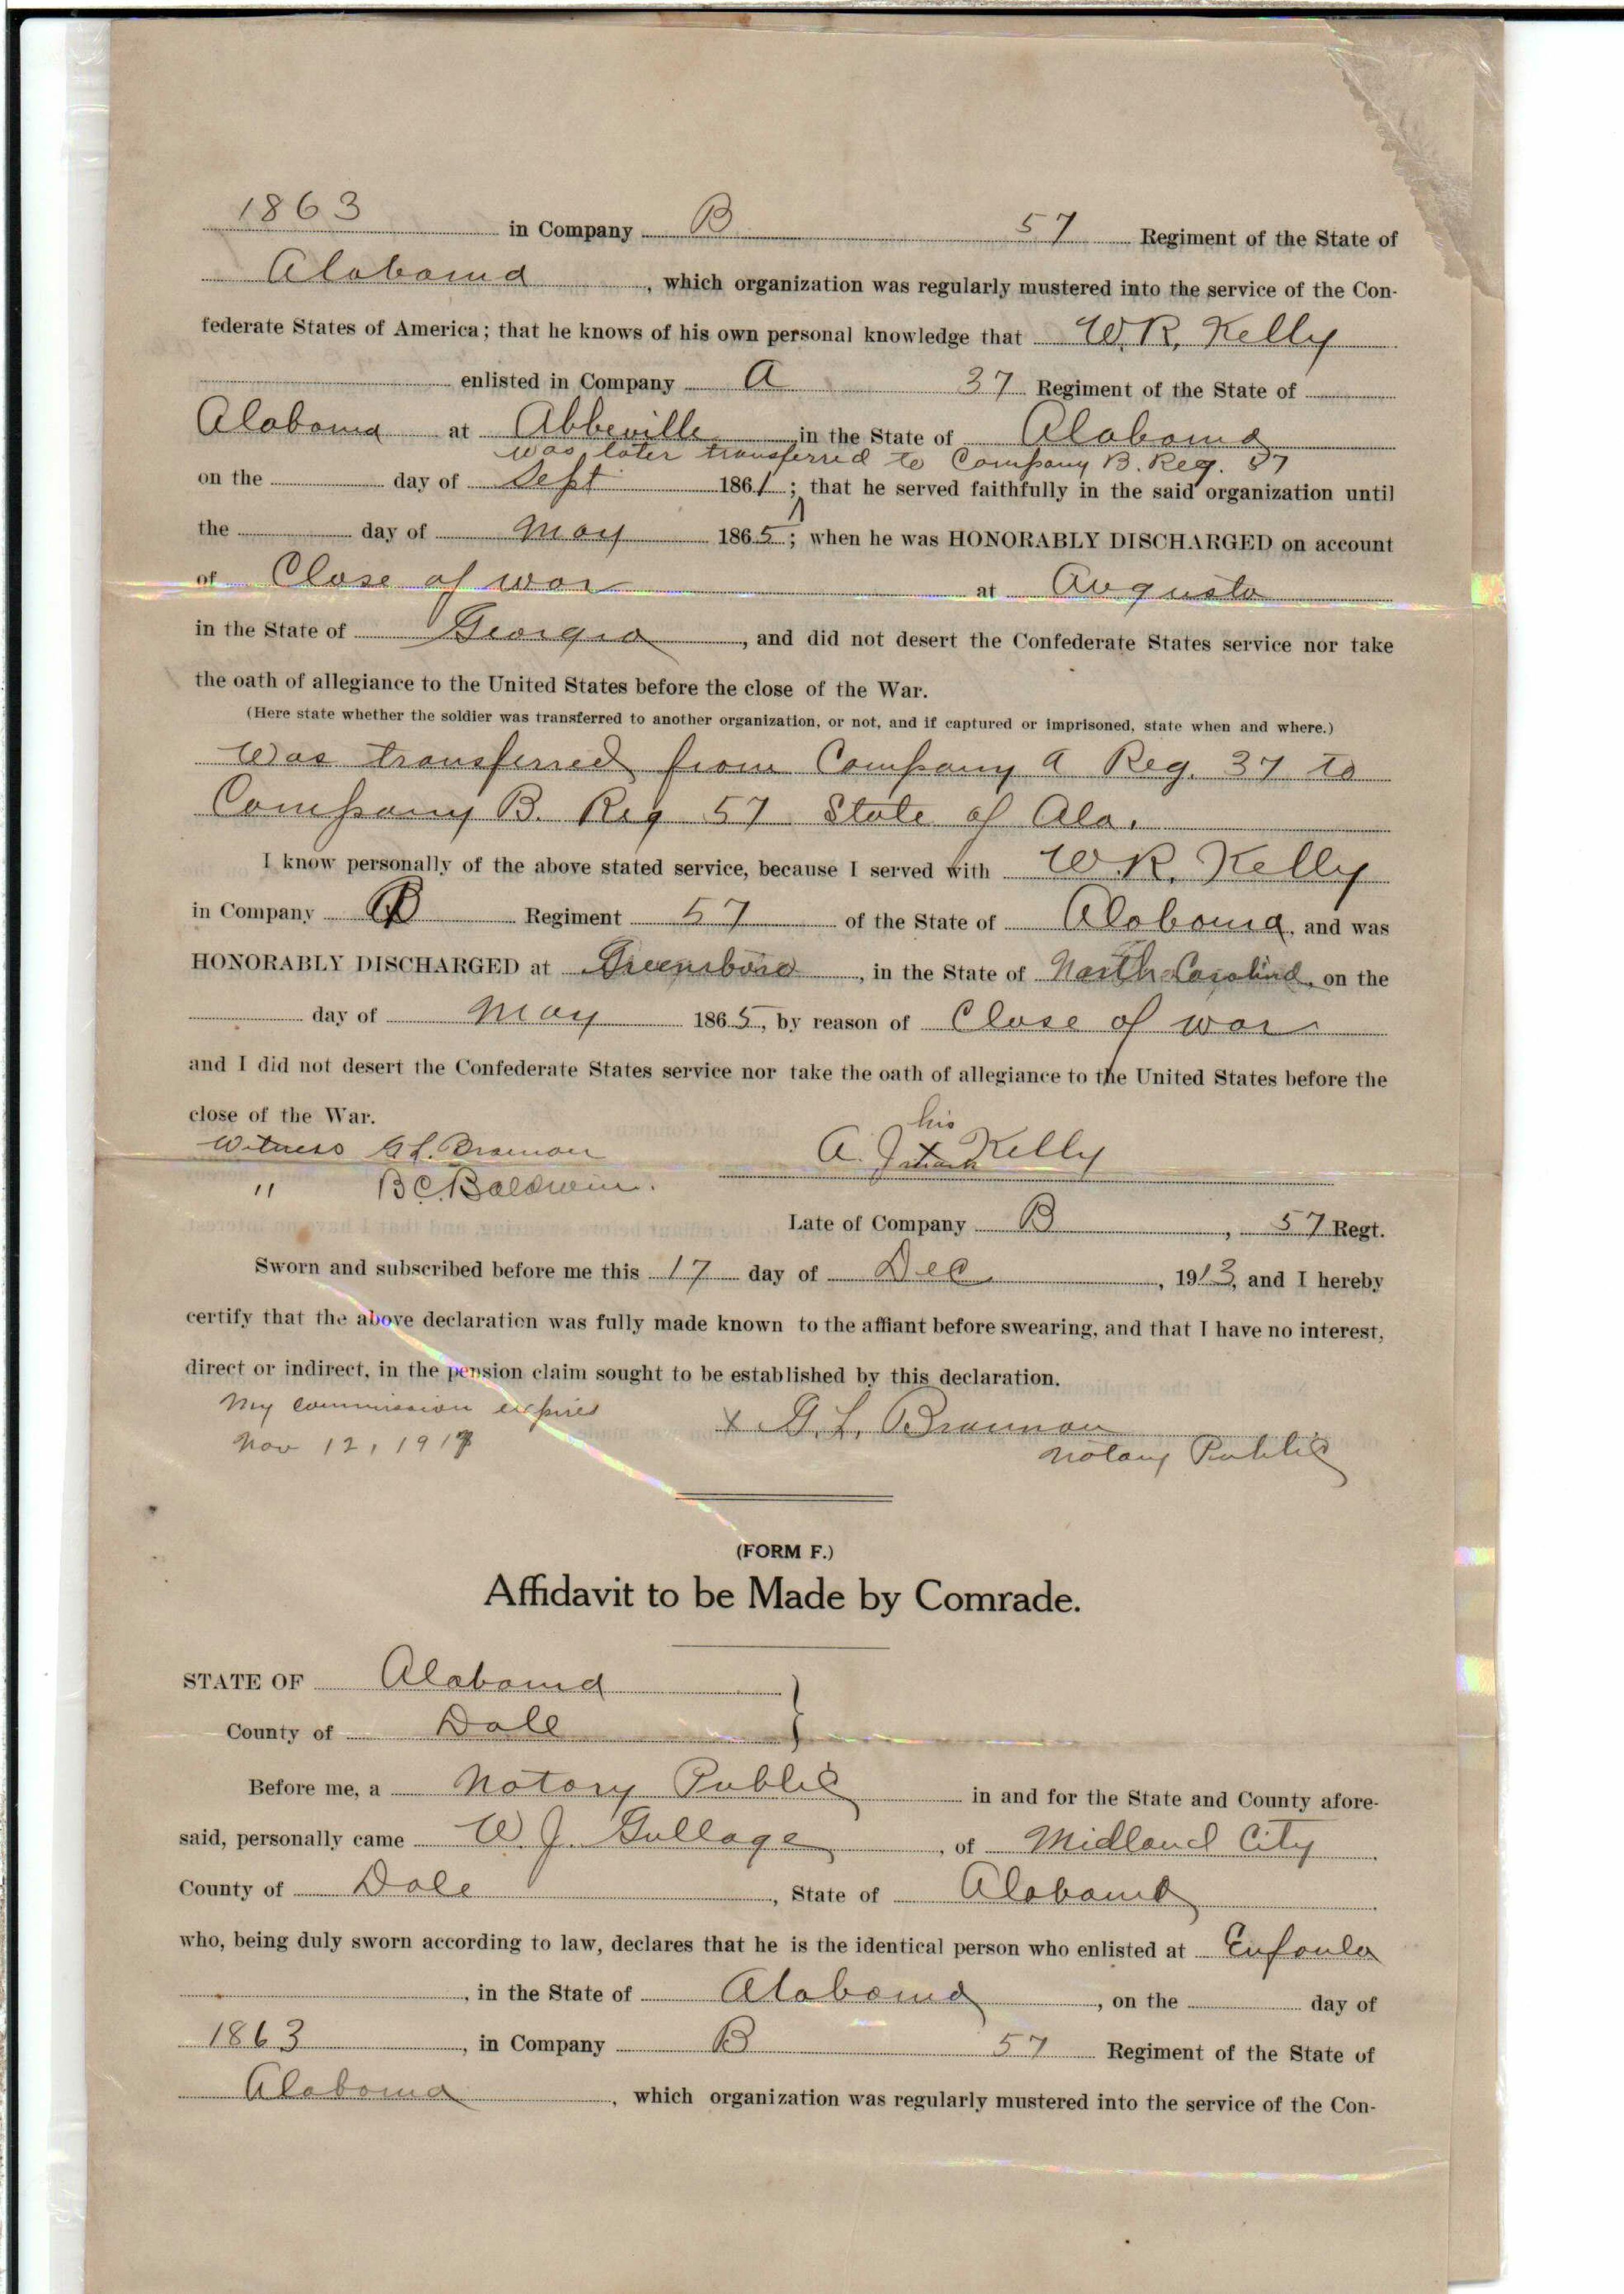 1863 in Company B 57 Regiment of the State of
Alabama, which organization was regularly mustered into the service of the Con-
federate States of America; that he knows of his own personal knowledge that W. R. Kelly
enlisted in Company A 37 Regiment of the State of
Alabama at Abbeville in the State of Alabama
was later transferred to Company B. Reg. 57
on the day of Sept 1861; that he served faithfully in the said organization until
the day of May 1865; when he was HONORABLY DISCHARGED on account
of Close of war at Augusta
in the State of Georgia, and did not desert the Confederate States service nor take
the oath of allegiance to the United States before the close of the War.
(Here state whether the soldier was transferred to another organization, or not, and if captured or imprisoned, state when and where.)
Was transferred from Company A Reg. 37 to
Company B. Reg 57 State of Ala.
I know personally of the above stated service, because I served with W. R. Kelly
in Company B Regiment 57 of the State of Alabama, and was
HONORABLY DISCHARGED at Greensboro, in the State of North Carolina, on the
day of May 1865, by reason of Close of war
and I did not desert the Confederate States service nor take the oath of allegiance to the United States before the
close of the War.
his
Witness G. L. Brannon A. J. x Kelly
mark
" B C Baldwin.
Late of Company B, 57 Regt.
Sworn and subscribed before me this 17 day of Dec., 1913, and I hereby
certify that the above declaration was fully made known to the affiant before swearing, and that I have no interest,
direct or indirect, in the pension claim sought to be established by this declaration.
My commission expires x G. L. Brannon
Nov 12, 1917 Notary Public
(FORM F.)
Affidavit to be Made by Comrade.
STATE OF Alabama }
County of Dale
Before me, a Notary Public in and for the State and County afore-
said, personally came W. J. Gullage, of Midland City
County of Dale, State of Alabama
who, being duly sworn according to law, declares that he is the identical person who enlisted at Eufaula
, in the State of Alabama, on the day of
1863, in Company B 57 Regiment of the State of
Alabama, which organization was regularly mustered into the service of the Con-